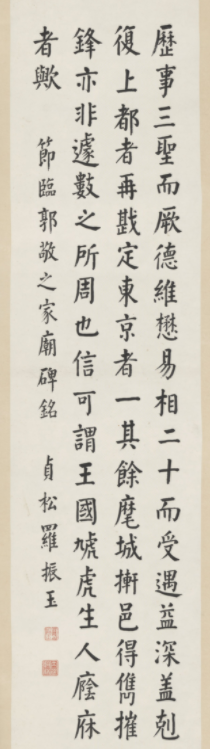 歷事三聖而厥德維懋易相二十而受遇益深蓋剋
復上都者再戡定東京者一其餘麾城摲邑得儁摧
鋒亦非遽數之所周也信可謂王國虓虎生人廕庥
者歟 節臨郭敬之家廟碑銘 貞松羅振玉